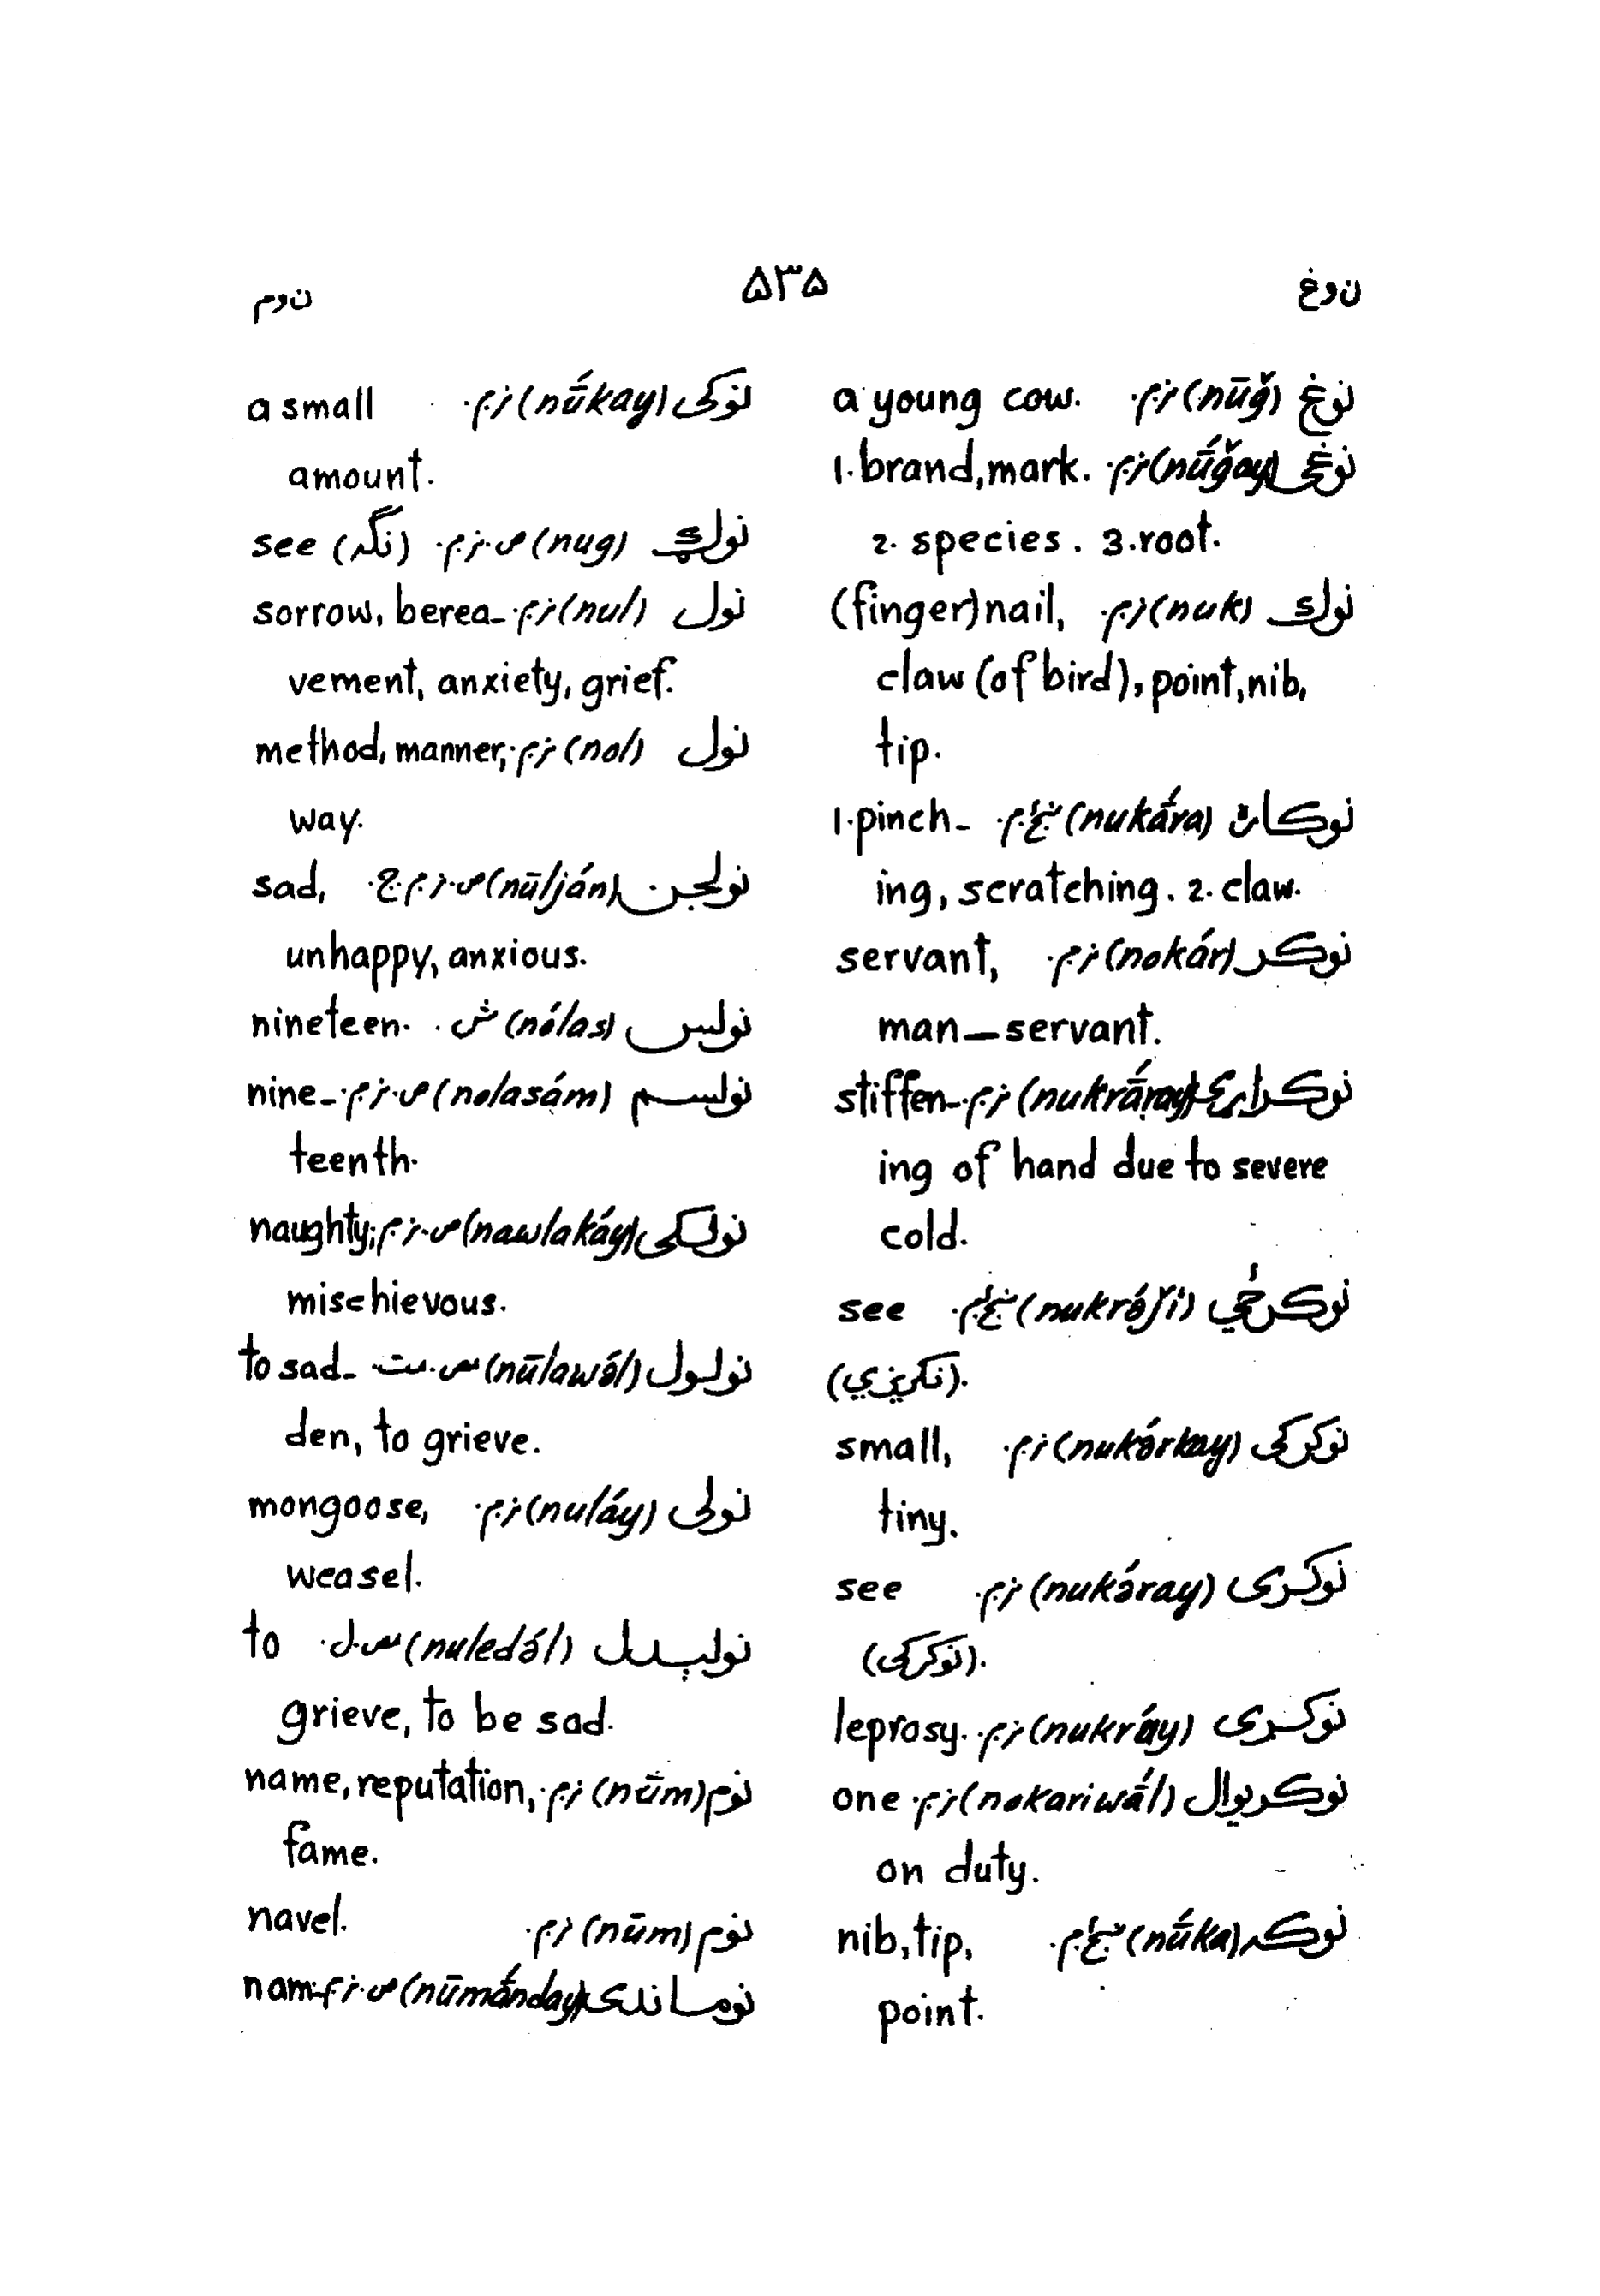 نوغ ۵۳۵ نوم
نوغ (nūğ) ن.م. a young cow.
نوغی (nū́ğay) ن.م. 1. brand, mark.
2. species. 3. root.
نوک (nuk) ن.م. (finger)nail,
claw (of bird), point, nib,
tip.
(nukā́ra) 1. pinch-
ing, scratching. 2. claw.
نوکر (nokár) ن.م. servant,
man-servant.
(nukrā́ṛay) ن.م. stiffen-
ing of hand due to severe
cold.
see
(نکریزي).
نوکرکی (nukə́rkay) ن.م. small,
tiny.
نوکری (nukə́ray) ن.م. see
(نوکرکی).
نوکری (nukráy) ن.م. leprosy.
نوکریوال (nokariwā́l) ن.م. one
on duty.
نوکه (nū́ka) nib, tip,
point.
نوکی (nū́kay) ن.م. a small
amount.
(nug) ص.ن.م. see (نګه)
نول (nul) ن.م. sorrow, berea-
vement, anxiety, grief.
نول (nol) ن.م. method, manner,
way.
نولجن (nūlján) ص.ن.م.ج. sad,
unhappy, anxious.
نولس (nólas) ش. nineteen.
نولسم (nolasám) ص.ن.م. nine-
teenth.
نولکی (nawlakáy) ص.ن.م. naughty;
mischievous.
نولول (nūlawə́l) س.مت. to sad-
den, to grieve.
نولی (nuláy) ن.م. mongoose,
weasel.
نولېدل (nuledə́l) س.ل. to
grieve, to be sad.
نوم (nūm) ن.م. name, reputation,
fame.
نوم (nūm) ن.م. navel.
نوماندی (nūmā́nday) ص.ن.م. nam-